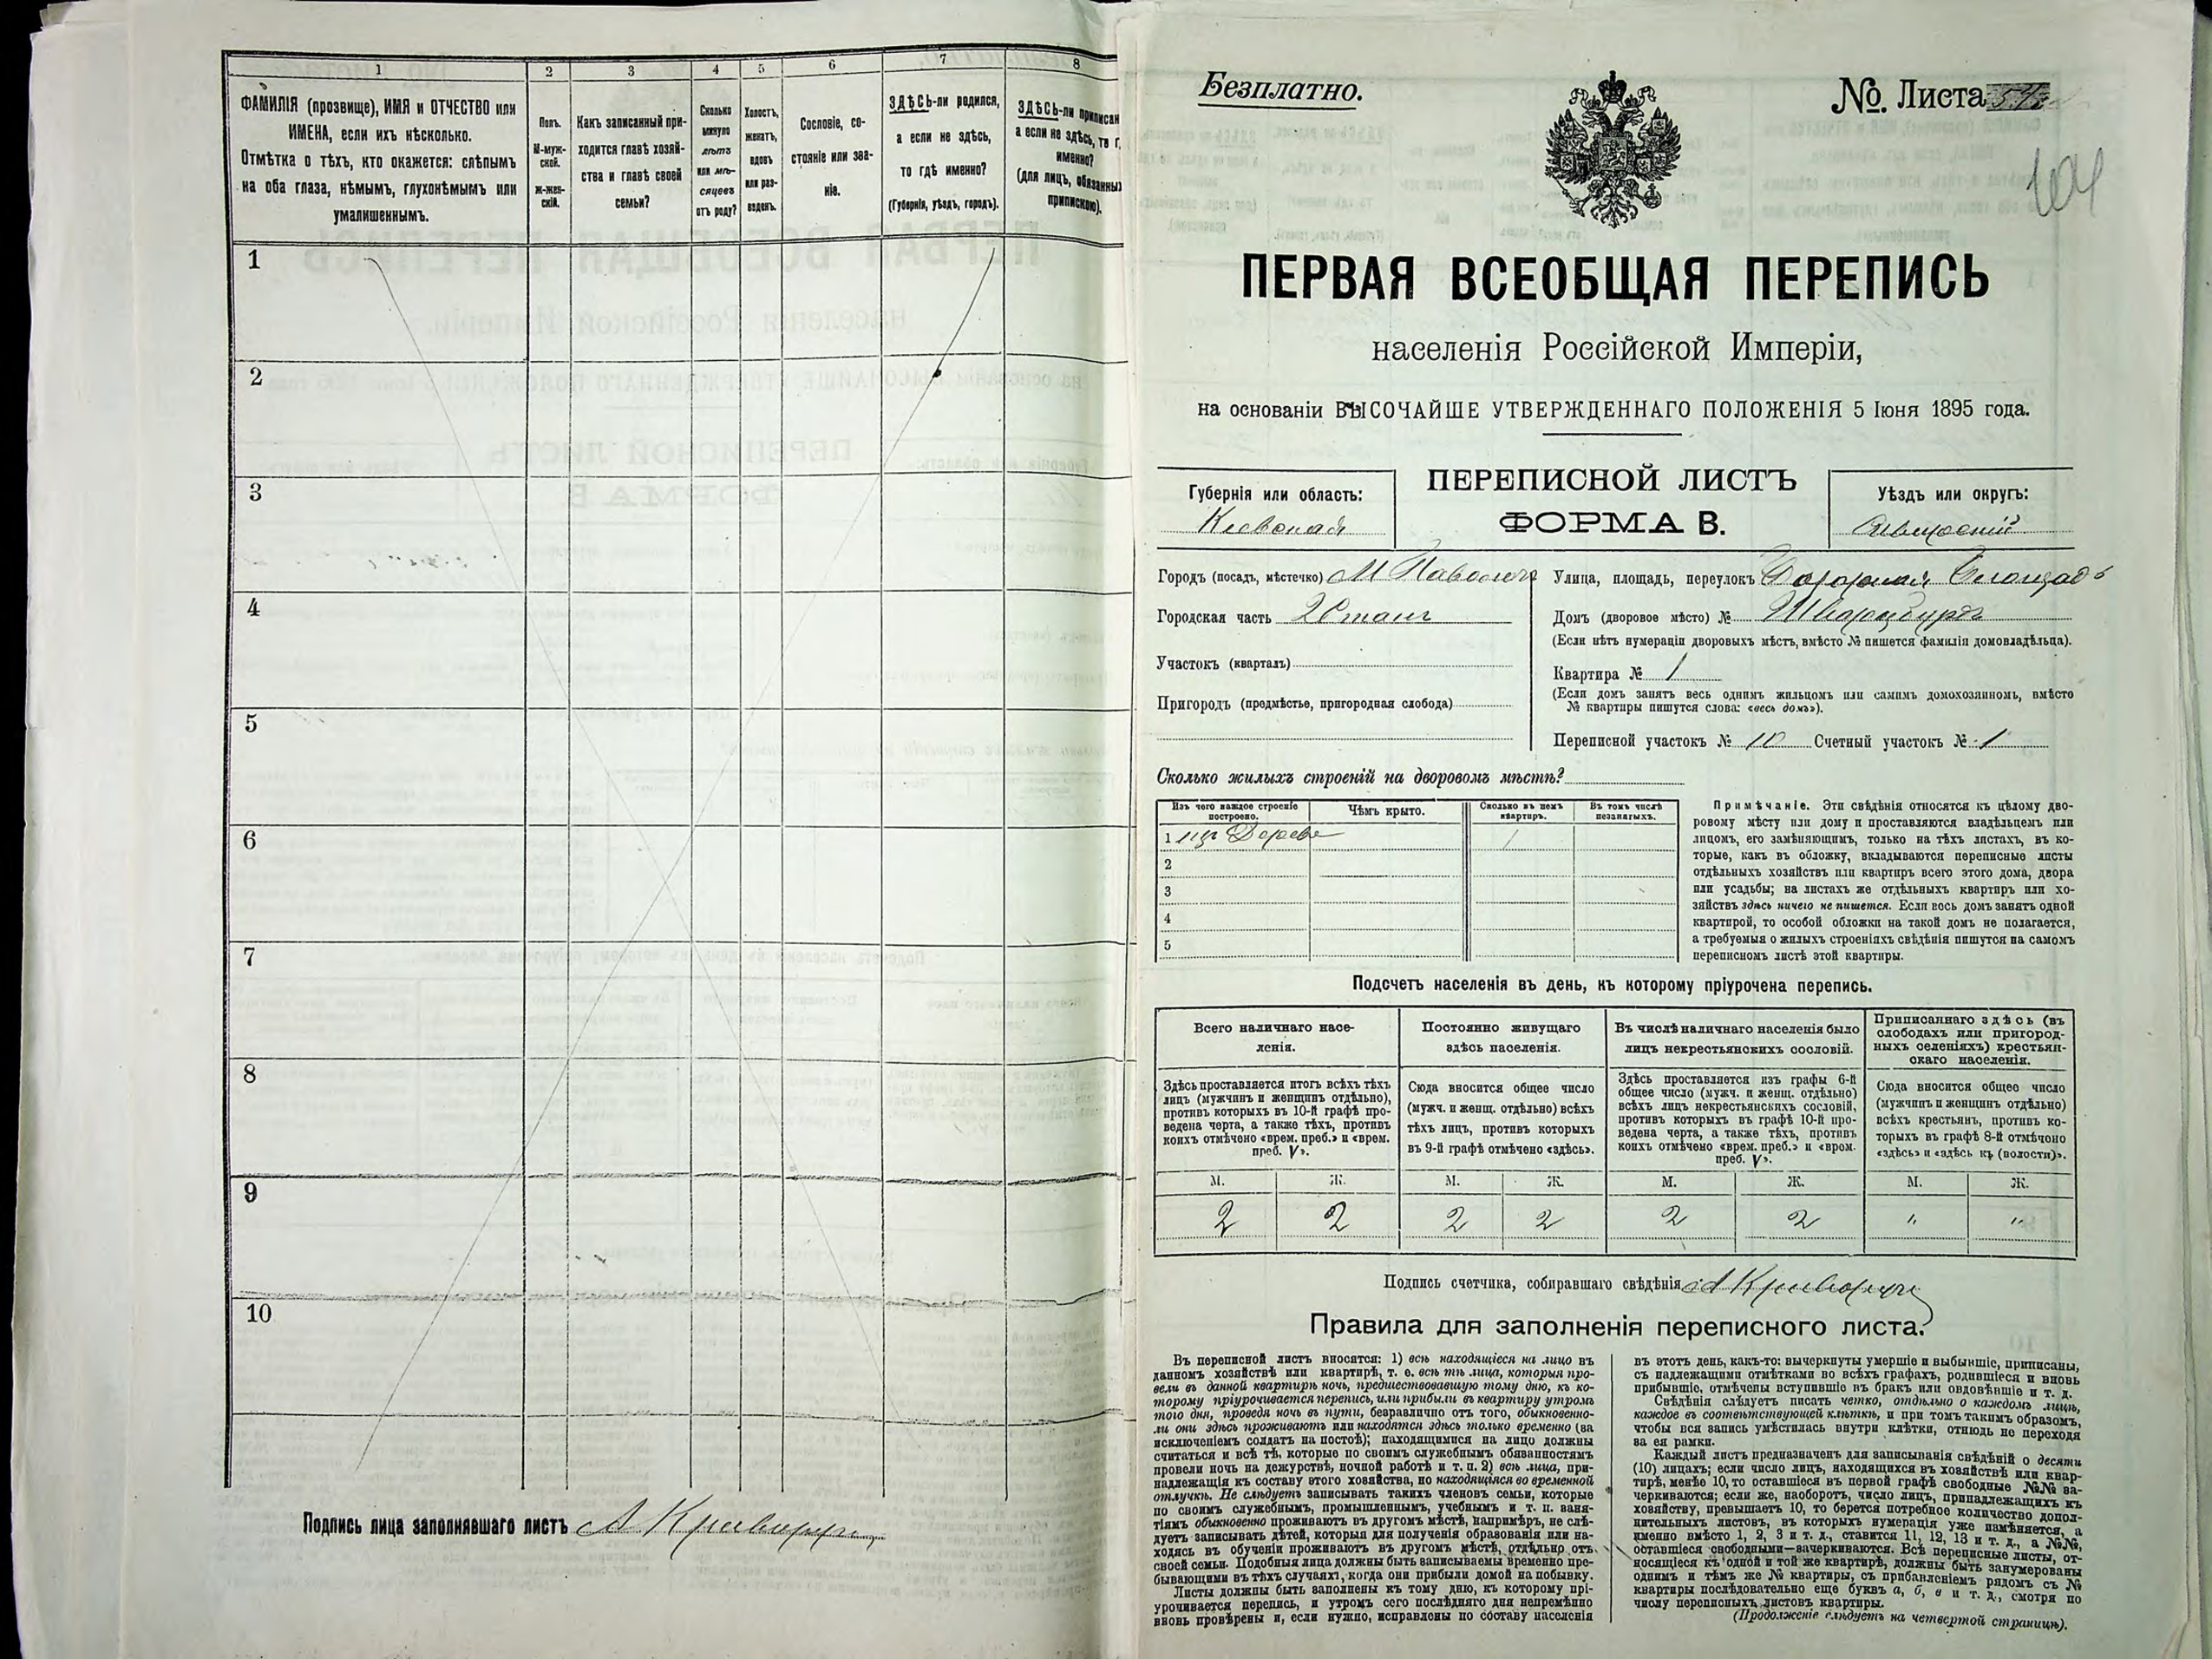 1 2 3 4 5 6 7 8
ФАМИЛІЯ (прозвище), ИМЯ и ОТЧЕСТВО или
ИМЕНА, если ихъ нѣсколько.
Отмѣтка о тѣхъ, кто окажется: слѣпымъ
на оба глаза, нѣмымъ, глухонѣмымъ или
умалишеннымъ.
Полъ.
М-муж-
ской.
Ж-жен-
скій.
Какъ записанный при-
ходится главѣ хозяй-
ства и главѣ своей
семьи?
Сколько
минуло
лѣтъ
или мѣ-
сяцевъ
отъ роду?
Холостъ,
женатъ,
вдовъ
или раз-
веденъ.
Сословіе, со-
стояніе или зва-
ніе.
ЗДѢСЬ-ли родился,
а если не здѣсь,
то гдѣ именно?
(Губернія, уѣздъ, городъ).
ЗДѢСЬ-ли приписан
а если не здѣсь, то г
именно?
(для лицъ, обязанных
припискою).
1
2
3
4
5
6
7
8
9
10
Подпись лица заполнявшаго листъ
Безплатно.
№ Листа
104
ПЕРВАЯ ВСЕОБЩАЯ ПЕРЕПИСЬ
населенія Россійской Имперіи,
на основаніи ВЫСОЧАЙШЕ УТВЕРЖДЕННАГО ПОЛОЖЕНІЯ 5 Іюня 1895 года.
Губернія или область:
Кіевская
ПЕРЕПИСНОЙ ЛИСТЪ
ФОРМА В.
Уѣздъ или округъ:
Сквирскій
Городъ (посадъ, мѣстечко) М Паволочь
Городская часть 2 Стань
Участокъ (кварталъ)
Пригородъ (предмѣстье, пригородная слобода)
Улица, площадь, переулокъ
Домъ (дворовое мѣсто) №
(Если нѣтъ нумераціи дворовыхъ мѣстъ, вмѣсто № пишется фамилія домовладѣльца).
Квартира № 1
(Если домъ занятъ весь однимъ жильцомъ или самимъ домохозяиномъ, вмѣсто
№ квартиры пишутся слова: «весь домъ»).
Переписной участокъ № 10 Счетный участокъ № 1
Сколько жилыхъ строеній на дворовомъ мѣстѣ?
Изъ чего каждое строеніе
построено.
Чѣмъ крыто.
Сколько въ немъ
квартиръ.
Въ томъ числѣ
незанятыхъ.
1 изъ Дерева 1
2
3
4
5
Примѣчаніе. Эти свѣдѣнія относятся къ цѣлому дво-
ровому мѣсту или дому и проставляются владѣльцемъ или
лицомъ, его замѣняющимъ, только на тѣхъ листахъ, въ ко-
торые, какъ въ обложку, вкладываются переписные листы
отдѣльныхъ хозяйствъ или квартиръ всего этого дома, двора
или усадьбы; на листахъ же отдѣльныхъ квартиръ или хо-
зяйствъ здѣсь ничего не пишется. Если весь домъ занятъ одной
квартирой, то особой обложки на такой домъ не полагается,
а требуемыя о жилыхъ строеніяхъ свѣдѣнія пишутся на самомъ
переписномъ листѣ этой квартиры.
Подсчетъ населенія въ день, къ которому пріурочена перепись.
Всего наличнаго насе-
ленія.
Постоянно живущаго
здѣсь населенія.
Въ числѣ наличнаго населенія было
лицъ некрестьянскихъ сословій.
Приписаннаго здѣсь (въ
слободахъ или пригород-
ныхъ селеніяхъ) крестьян-
скаго населенія.
Здѣсь проставляется итогъ всѣхъ тѣхъ
лицъ (мужчинъ и женщинъ отдѣльно),
противъ которыхъ въ 10-й графѣ про-
ведена черта, а также тѣхъ, противъ
коихъ отмѣчено «врем. преб.» и «врем.
преб. V».
Сюда вносится общее число
(мужч. и женщ. отдѣльно) всѣхъ
тѣхъ лицъ, противъ которыхъ
въ 9-й графѣ отмѣчено «здѣсь».
Здѣсь проставляется изъ графы 6-й
общее число (мужч. и женщ. отдѣльно)
всѣхъ лицъ некрестьянскихъ сословій,
противъ которыхъ въ графѣ 10-й про-
ведена черта, а также тѣхъ, противъ
коихъ отмѣчено «врем. преб.» и «врем.
преб. V».
Сюда вносится общее число
(мужчинъ и женщинъ отдѣльно)
всѣхъ крестьянъ, противъ ко-
торыхъ въ графѣ 8-й отмѣчено
«здѣсь» и «здѣсь къ (волости)».
М. Ж. М. Ж. М. Ж. М. Ж.
2 2 2 2 2 2 " "
Подпись счетчика, собиравшаго свѣдѣнія
Правила для заполненія переписного листа.
Въ переписной листъ вносятся: 1) всѣ находящіеся на лицо въ
данномъ хозяйствѣ или квартирѣ, т. е. всѣ тѣ лица, которыя про-
вели въ данной квартирѣ ночь, предшествовавшую тому дню, къ ко-
торому пріурочивается перепись, или прибыли въ квартиру утромъ
того дня, проведя ночь въ пути, безразлично отъ того, обыкновенно-
ли они здѣсь проживаютъ или находятся здѣсь только временно (за
исключеніемъ солдатъ на постоѣ); находящимися на лицо должны
считаться и всѣ тѣ, которые по своимъ служебнымъ обязанностямъ
провели ночь на дежурствѣ, ночной работѣ и т. п. 2) всѣ лица, при-
надлежащія къ составу этого хозяйства, но находящіяся во временной
отлучкѣ. Не слѣдуетъ записывать такихъ членовъ семьи, которые
по своимъ служебнымъ, промышленнымъ, учебнымъ и т. п. заня-
тіямъ обыкновенно проживаютъ въ другомъ мѣстѣ, напримѣръ, не слѣ-
дуетъ записывать дѣтей, которыя для полученія образованія или на-
ходясь въ обученіи проживаютъ въ другомъ мѣстѣ, отдѣльно отъ
своей семьи. Подобныя лица должны быть записываемы временно пре-
бывающими въ тѣхъ случаяхъ, когда они прибыли домой на побывку.
Листы должны быть заполнены къ тому дню, къ которому прі-
урочивается перепись, и утромъ сего послѣдняго дня непремѣнно
вновь провѣрены и, если нужно, исправлены по составу населенія
въ этотъ день, какъ-то: вычеркнуты умершіе и выбывшіе, приписаны,
съ надлежащими отмѣтками во всѣхъ графахъ, родившіеся и вновь
прибывшіе, отмѣчены вступившіе въ бракъ или овдовѣвшіе и т. д.
Свѣдѣнія слѣдуетъ писать четко, отдѣльно о каждомъ лицѣ,
каждое въ соотвѣтствующей клѣткѣ, и при томъ такимъ образомъ,
чтобы вся запись умѣстилась внутри клѣтки, отнюдь не переходя
за ея рамки.
Каждый листъ предназначенъ для записыванія свѣдѣній о десяти
(10) лицахъ; если число лицъ, находящихся въ хозяйствѣ или квар-
тирѣ, менѣе 10, то оставшіеся въ первой графѣ свободные №№ за-
черкиваются; если же, наоборотъ, число лицъ, принадлежащихъ къ
хозяйству, превышаетъ 10, то берется потребное количество допол-
нительныхъ листовъ, въ которыхъ нумерація уже измѣняется, а
именно вмѣсто 1, 2, 3 и т. д., ставится 11, 12, 13 и т. д., а №№,
оставшіеся свободными—зачеркиваются. Всѣ переписные листы, от-
носящіеся къ одной и той же квартирѣ, должны быть занумерованы
однимъ и тѣмъ же № квартиры, съ прибавленіемъ рядомъ съ №
квартиры послѣдовательно еще буквъ а, б, в и т. д., смотря по
числу переписныхъ листовъ квартиры.
(Продолженіе слѣдуетъ на четвертой страницѣ).